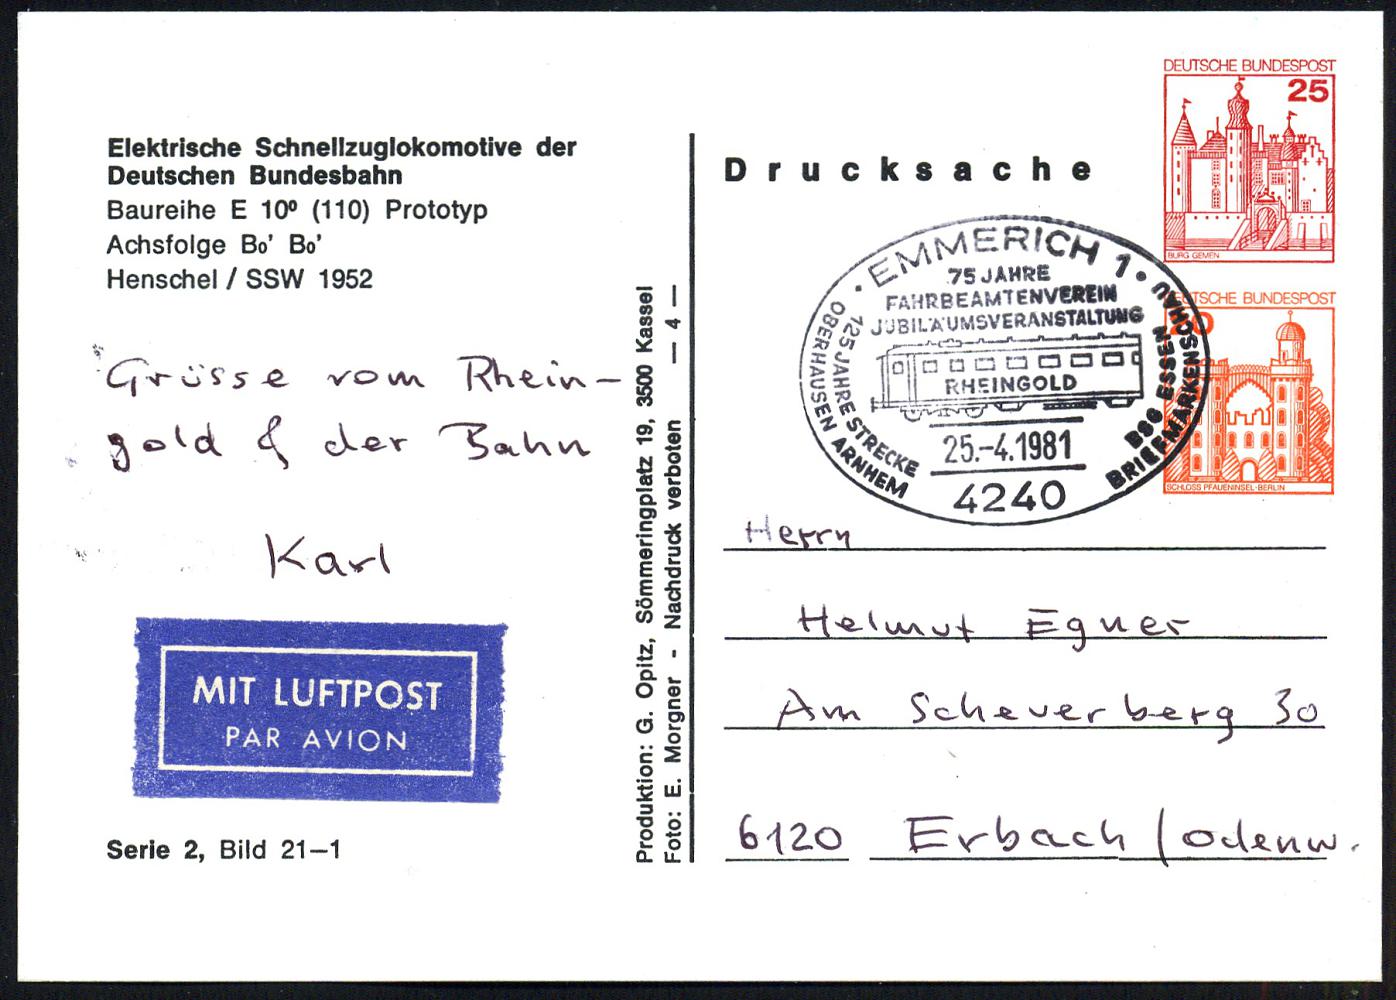 Elektrische Schnellzuglokomotive der
Deutschen Bundesbahn
Baureihe E 10⁰ (110) Prototyp
Achsfolge Bo' Bo'
Henschel / SSW 1952
Grüsse vom Rhein-
gold & der Bahn
Karl
MIT LUFTPOST
PAR AVION
Serie 2, Bild 21–1
Produktion: G. Opitz, Sömmeringplatz 19, 3500 Kassel
Foto: E. Morgner - Nachdruck verboten — 4 —
Drucksache
DEUTSCHE BUNDESPOST
25
BURG GEMEN
DEUTSCHE BUNDESPOST
SCHLOSS PFAUENINSEL-BERLIN
· EMMERICH 1 ·
75 JAHRE
FAHRBEAMTENVEREIN
JUBILÄUMSVERANSTALTUNG
125 JAHRE STRECKE
OBERHAUSEN ARNHEM
RHEINGOLD
BSG ESSEN
BRIEFMARKENSCHAU
25.-4.1981
4240
Herrn
Helmut Egner
Am Scheuerberg 30
6120 Erbach / Odenw.